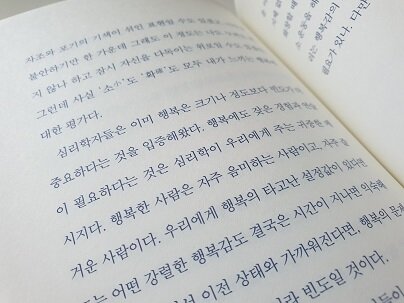 자조와 포기의 기색이 섞인 표현일 수도 있겠
불안하기만 한 가운데 그래도 이 정도는
지 않나 하고 잠시 자신을 다독이는 위로일 수도
그런데 사실 '소小'도 '확確'도 모두 내가 느끼는 행복에
대한 평가다.
심리학자들은 이미 행복은 크기나 정도보다 빈도가
중요하다는 것을 입증해왔다. 행복에도 잦은 경험과 연습
이 필요하다는 것은 심리학이 우리에게 주는 귀중한 메
시지다. 행복한 사람은 자주 음미하는 사람이고, 자주 즐
거운 사람이다. 우리에게 행복의 타고난 설정값이 있다면
는 어떤 강렬한 행복감도 결국은 시간이 지나면 익숙해
이전 상태와 가까워진다면, 행복의 문제
빈도일 것이다.
소
운동을 하
라는 행복감의
필요가 있다. 다만